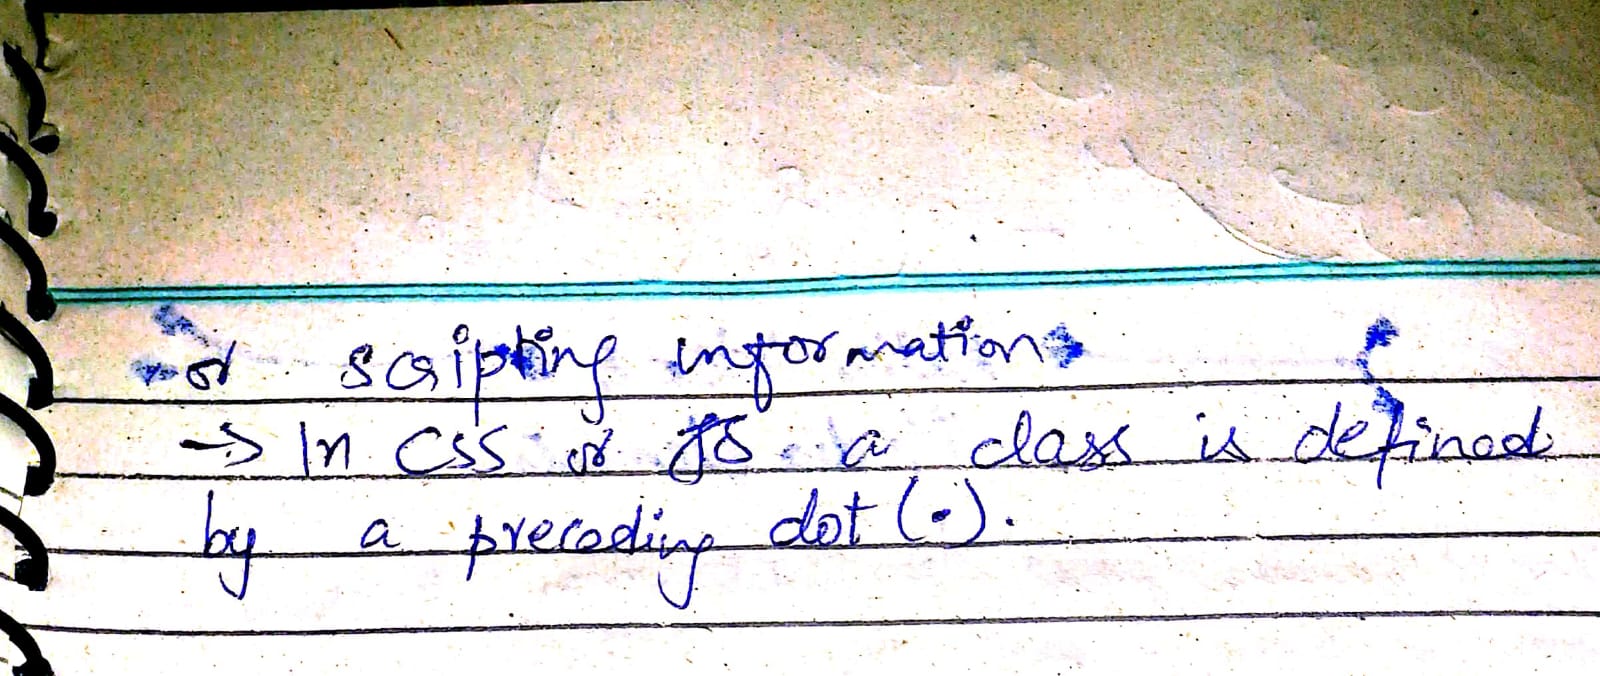 or scripting information
→ In CSS or JS a class is defined
by a preceding dot (.).